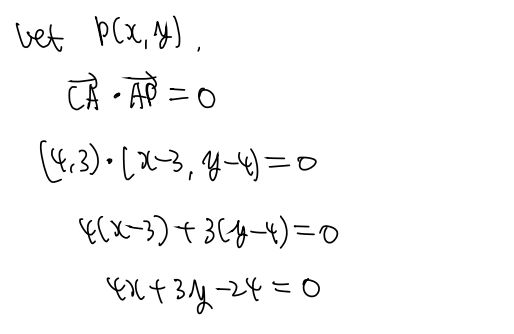 let P(x,y),
\overrightarrow{CA} · \overrightarrow{AP} = 0
(4,3)·(x-3, y-4)=0
4(x-3)+3(y-4)=0
4x+3y-24=0